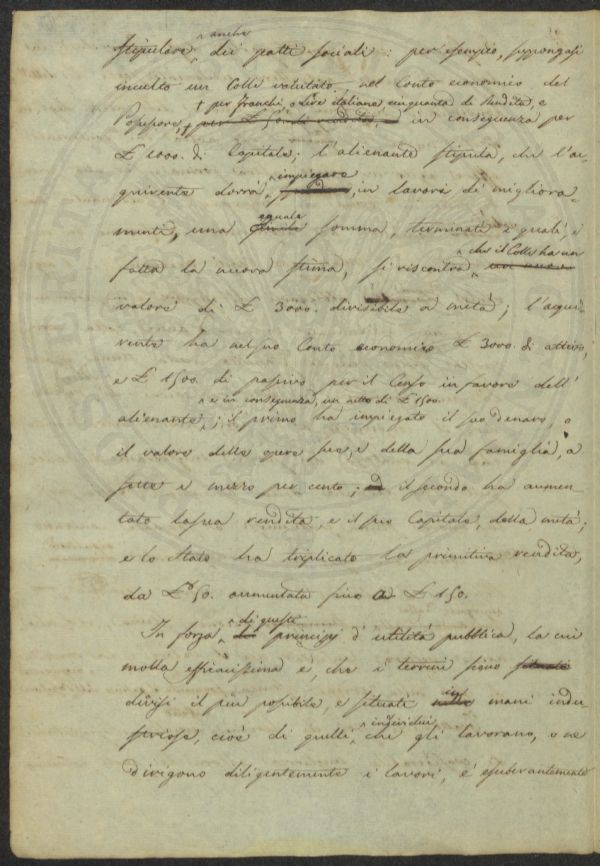 anche
stipulare dei patti sociali: per esempio, suppongasi
incolto un Colle valutato, nel Conto economico del
+ per franchi, o Lire italiane cinquanta di Rendita, e
Possessore, + per £ 50 di rendita, in conseguenza per
£ 1000. di Capitale; l'alienante stipula, che l'ac-
impiegare
quirente dovrà, in lavori di migliora-
eguale
mento, una simile somma, terminati i quali e
che il Colle ha un
fatta la nuova stima, si riscontra
valore di £ 3000. divisibile a metà; l'acqui-
rente ha nel suo Conto economico £ 3000. di attivo,
e £ 1500. di passivo per il Censo in favore dell'
e in conseguenza, un netto di £ 1500.
alienante; il primo ha impiegato il suo denaro, o
il valore delle opere sue, e della sua famiglia, a
sette e mezzo per cento; il secondo ha aumen-
tato la sua rendita, e il suo Capitale, della metà;
e lo Stato ha triplicato la primitiva rendita,
da £ 50. aumentata fino a £ 150.
di questi
In forza dei principj d'utilità pubblica, la cui
molla efficacissima è, che i terreni siano situati
divisi il più possibile, e situati nelle mani indu-
in
individui
striose, cioè di quelli, che gli lavorano, o ne
dirigono diligentemente i lavori, è esuberantemente